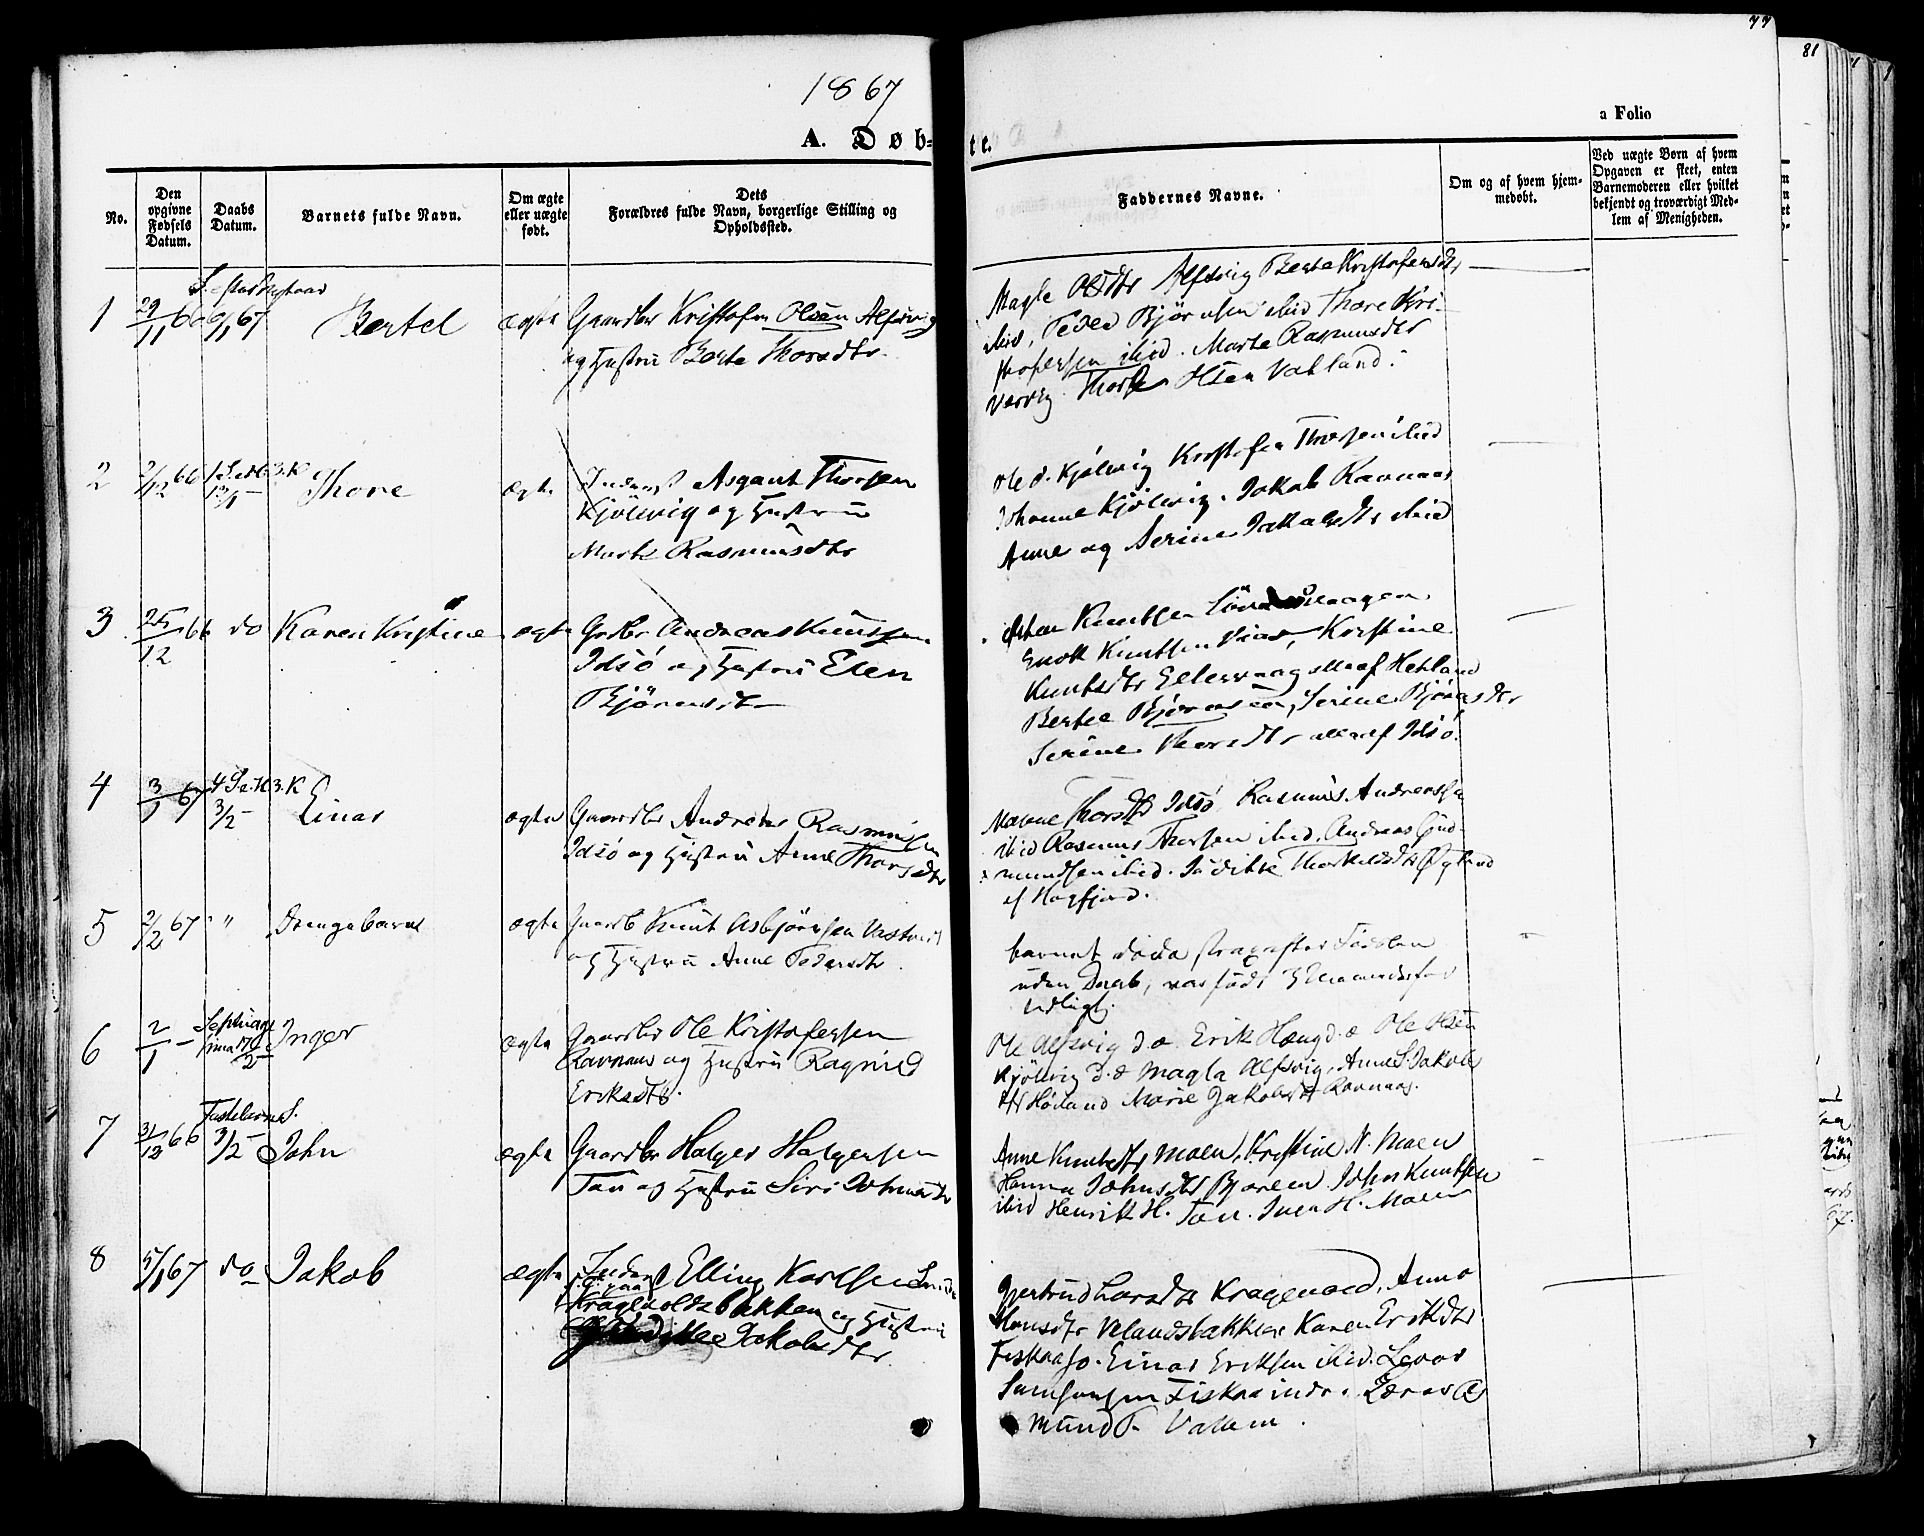 1867
77
81
A. Døb-
te.
a Folio
No.
Den opgivne Fødsels Datum.
Daabs Datum.
Barnets fulde Navn.
Om ægte eller uægte født.
Dets Forældres fulde Navn, borgerlige Stilling og Opholdssted.
Faddernes Navne.
Om og af hvem hjemmedøbt.
Ved uægte Børn af hvem Opgaven er skeet, enten Barnemoderen eller hvilket bekjendt og troværdigt Medlem af Menigheden.
1 29/11 66 6/1 67 Bertel ægte Gaardbr Kristofer Olsen Alfsvig
og Hustru Berte Thorsdtr.
Magle Olsdtr Alfsvig Berte Kristofersdtr
ibid, Peder Bjørnsen ibid Thore Kri-
stofersen ibid. Marte Rasmusdtr
Thorsen Olsen Valland.
2 2/12 66 1 S. e. H 3. K 13/1 - Thore ægte Inderst Asgaut Thorsen
Kjölevig og Hustru
Marte Rasmusdtr
Ole d. Kjölevig Kristofer Thorsen ibid
Johanne Kjölevig. Jakob Ravnaas
Anne og Serine Jakobsdtr ibid
3 25/12 66 do Karen Kristine ægte Grdbr Andreas Knutsen
Idsö og Hustru Elen
Björnsdtr
Knutsen
Enok Knutsen Kristine
Knutsdtr alle af Hetland
Bertee Björnsen, Serine Bjørnsdtr
Serine Thorsdtr alle af Idsö.
4 3/1 67 4 S. e. H 3. K 3/2 - Einar ægte Gaardbr Andreas Rasmussen
Idsö og Hustru Anne Thorsdtr
Thorsdtr Idsö Rasmus Andreassen
ibid Rasmus Thorsen ibid, Andreas Gud-
mundsen ibid. Judikte Thorkildsdtr Øglend
af Høgsfjord.
5 2/2 67 " Drengebarn ægte Gaardb Knut Asbjörnsen
og Hustru Anne Pedersdtr
barnet döde strax efter Födslen
uden Daab, var födt 3 Maaneder for
tidligt.
6 2/1 - Septuage
sima 17/2 - Inger ægte Gaardbr Ole Kristofersen
Ravnaas og Hustru Ragnild
Eriksdtr.
Ole Alfsvig d. æ. Erik Haug d. æ Ole Olsen
Kjölevig d. æ Magla Alfsvig, Anne S. Jakobs
dtr Høiland Marie Jakobsdtr Ravnaas.
7 31/12 66 Fastelavns S. 3/2 - John ægte Gaardbr Holger Holgersen
Tau og Hustru Siri Johnsdtr
Anne Knutsdtr Moen, Kristine N. Moen
Hanna Johnsdtr Bjøreim John Knutsen
ibid Henrik H. Tau. Iver H. Moen
8 5/1 67 do Jakob ægte Inderst Elling Karlsen
bakken og Hustru
Jakobsdtr
Gjertrud Larsdtr Kragevold. Anne
Hansdtr Velandsbakken Karen Eriksdtr
Fiskaa . Einar Eriksen ibid.
Samsonsen Fiskaa indr.
mund T.